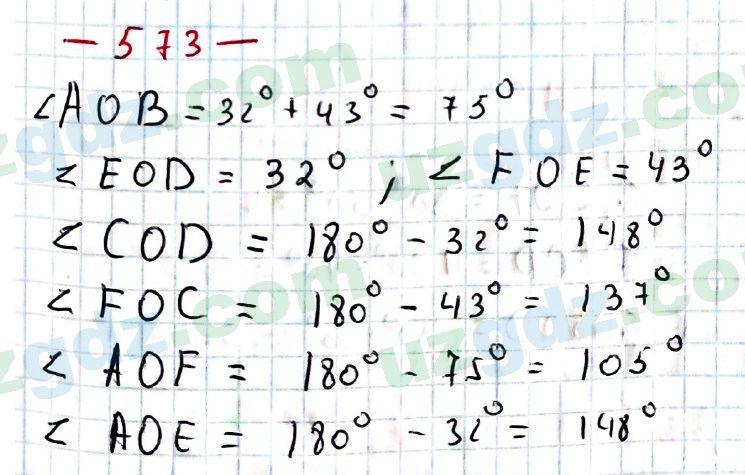 — 573 —
<AOB = 32° + 43° = 75°
< EOD = 32° ; < FOE = 43°
< COD = 180° - 32° = 148°
< FOC = 180° - 43° = 137°
< AOF = 180° - 75° = 105°
< AOE = 180° - 32° = 148°
uzgdz.com